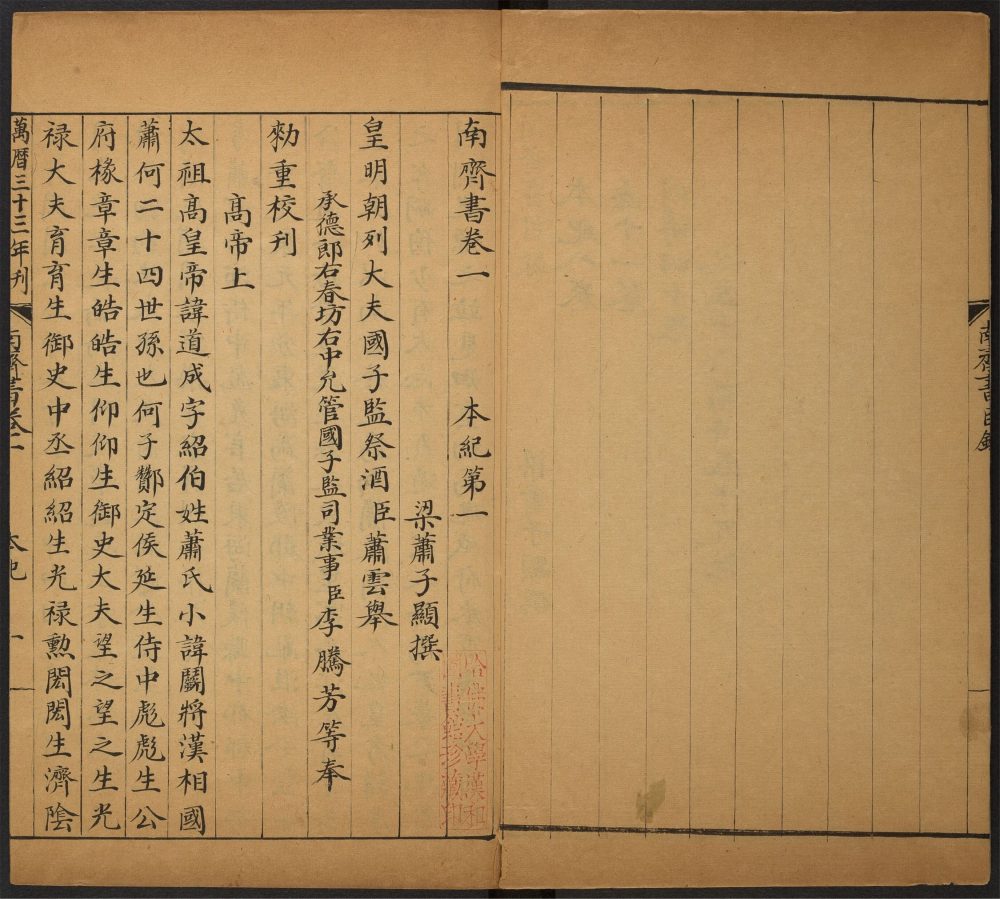 南齊書目錄
南齊書卷一　　本紀第一
梁蕭子顯撰
皇明朝列大夫國子監祭酒臣蕭雲舉
承德郎右春坊右中允管國子監司業事臣李騰芳等奉
勑重校刊
髙帝上
太祖髙皇帝諱道成字紹伯姓蕭氏小諱鬭將漢相國
蕭何二十四世孫也何子酇定侯延生侍中彪彪生公
府椽章章生皓皓生仰仰生御史大夫望之望之生光
禄大夫育育生御史中丞紹紹生光禄勲閎閎生濟隂
萬曆三十三年刊　南齊書卷一　本紀　一
哈佛大學漢和
圖書館珍藏印